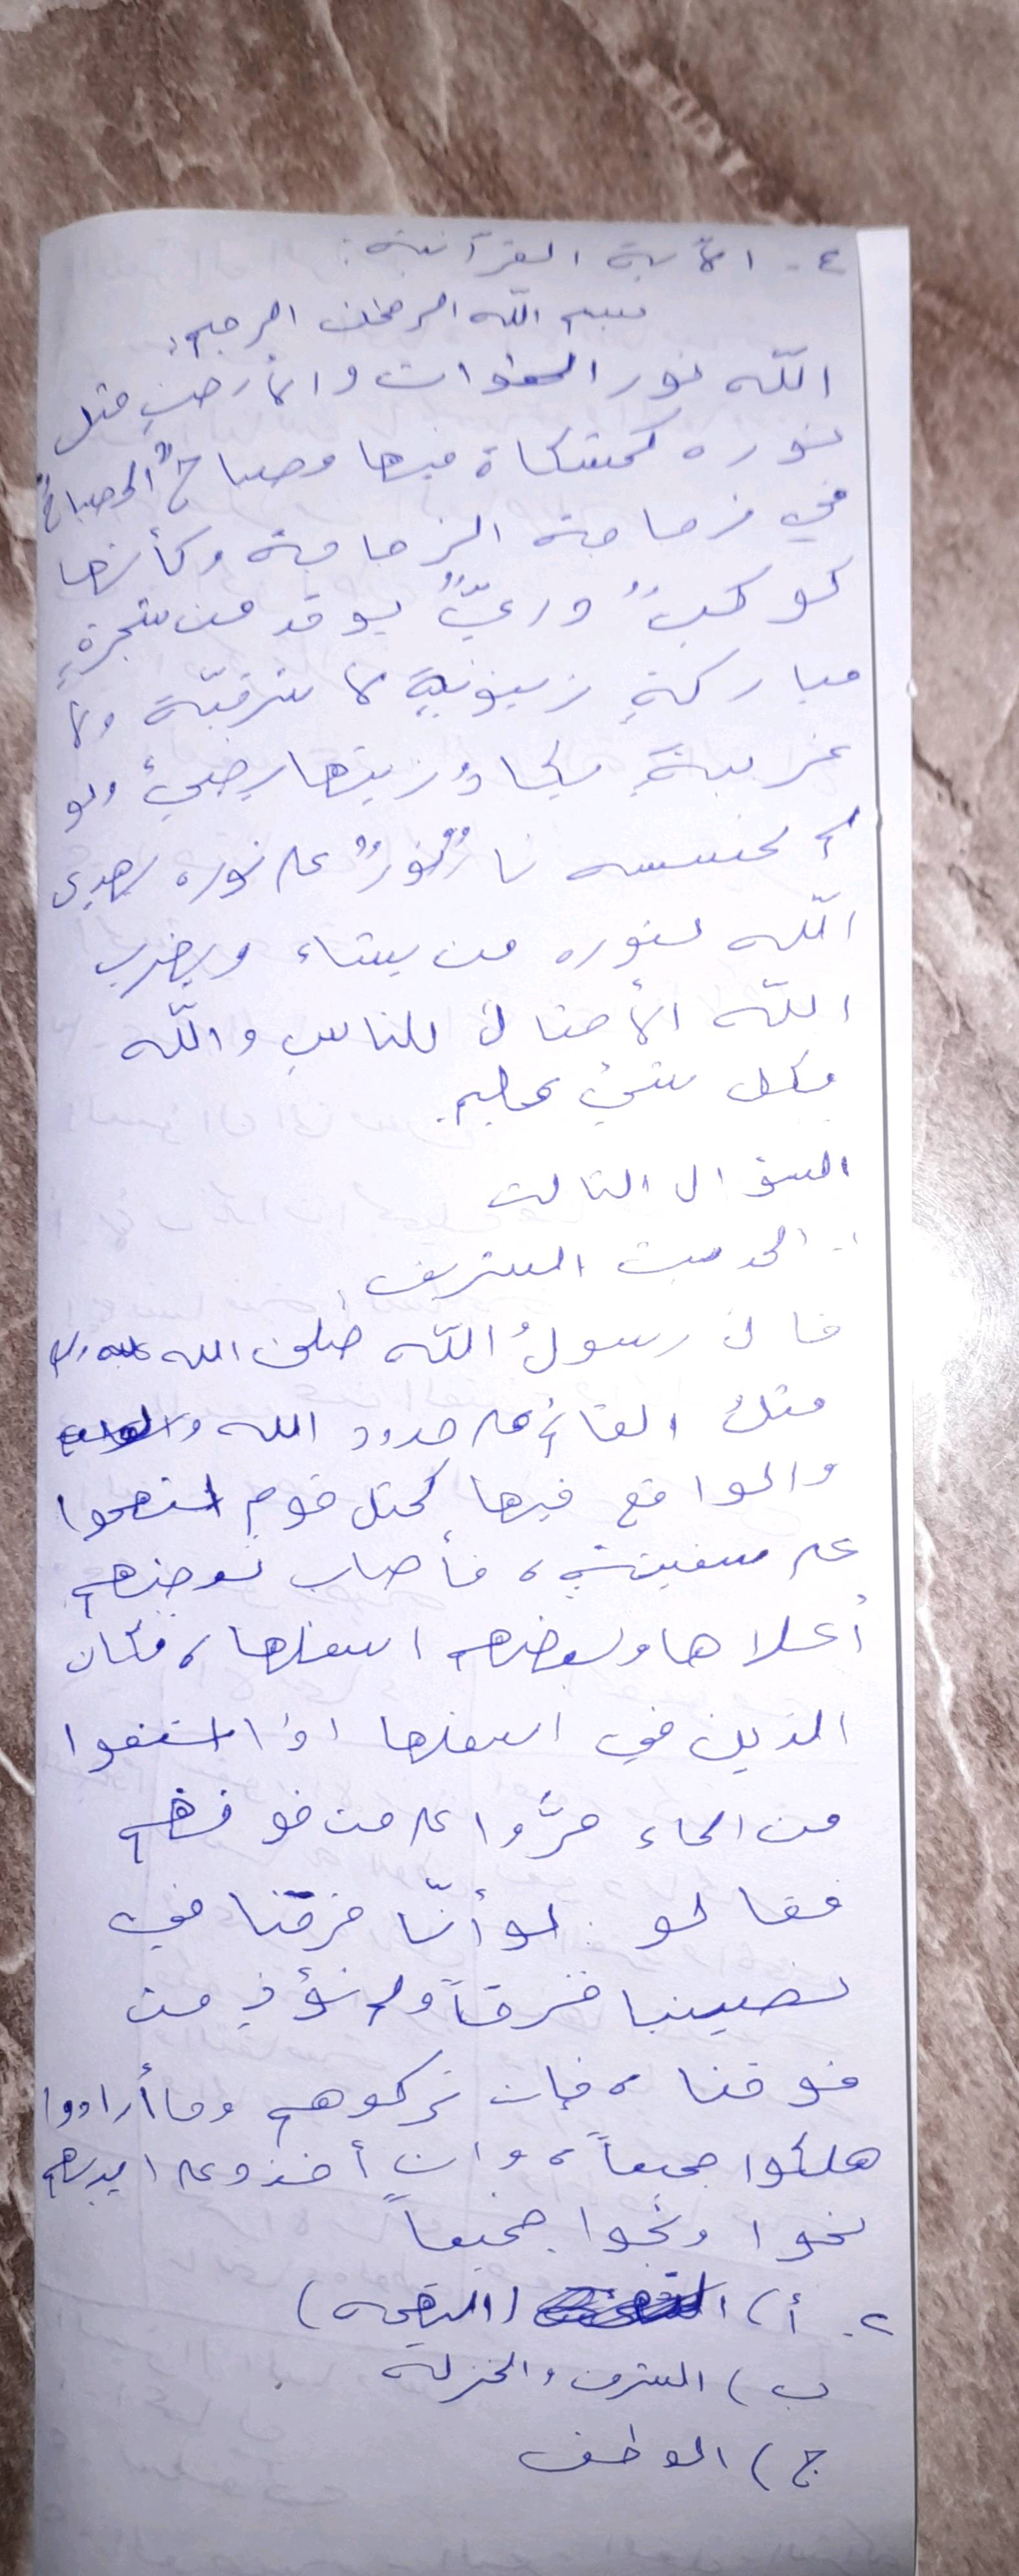 ٤- الآية القرآنية:
بسم الله الرحمن الرحيم:
الله نور السموات والأرض مثل
نوره كمشكاة فيها مصباح "المصباحُ"
في زجاجة الزجاجة وكأنها
كوكبٌ دريٌّ يوقد من شجرةٍ
مباركةٍ زيتونيةٍ لا شرقيّة ولا
غربيةٍ يكادُ زيتها يضيءُ ولو
لم تمسسه نارٌ نورٌ على نوره يهدي
الله لنوره من يشاء ويضرب
الله الأمثال للناس والله
بكل شيءٍ عليم.
السؤال الثالث
١- الحديث الشريف:
قال رسولُ الله صلى الله عليه وسلم
مثل القائم على حدود الله
والواقع فيها كمثل قوم استهموا
على سفينةٍ، فأصاب بعضهم
أعلاها وبعضهم اسفلها، فكان
الذين في اسفلها اذا استقوا
من الماء مرُّوا على من فوقهم
فقالو: لو أنّا خرقنا في
نصيبنا خرقاً ولم نؤذِ من
فوقنا، فإن تركوهم وما أرادوا
هلكوا جميعاً، وان أخذو على ايديهم
نجوا ونجوا جميعاً
٢- أ)
ب) الشرف والمنزلة
ج)